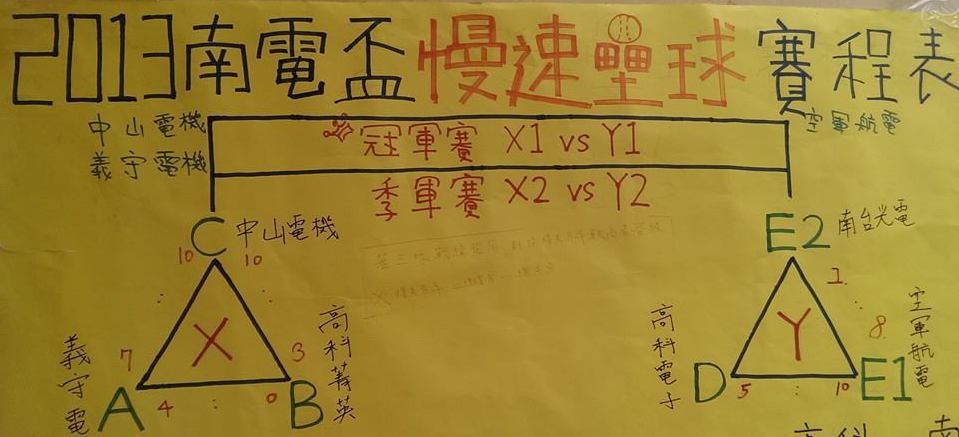 2013南電盃慢速壘球賽程表
中山電機
義守電機
空軍航電
冠軍賽 X1 vs Y1
季軍賽 X2 vs Y2
C 中山電機
10 10
:
:
7
3
X
義守電
A
4
:
0
B
高科菁英
E2 南台光電
1
:
8
Y
高科電子
D
5
:
10
E1
空軍航電